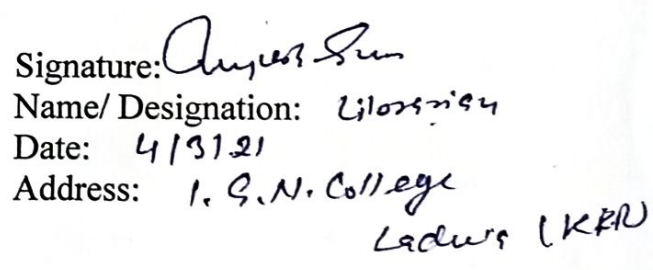 Signature:
Name/ Designation: Librarian
Date: 4/3/21
Address: I. G. N. College
Ladwa (KKR)